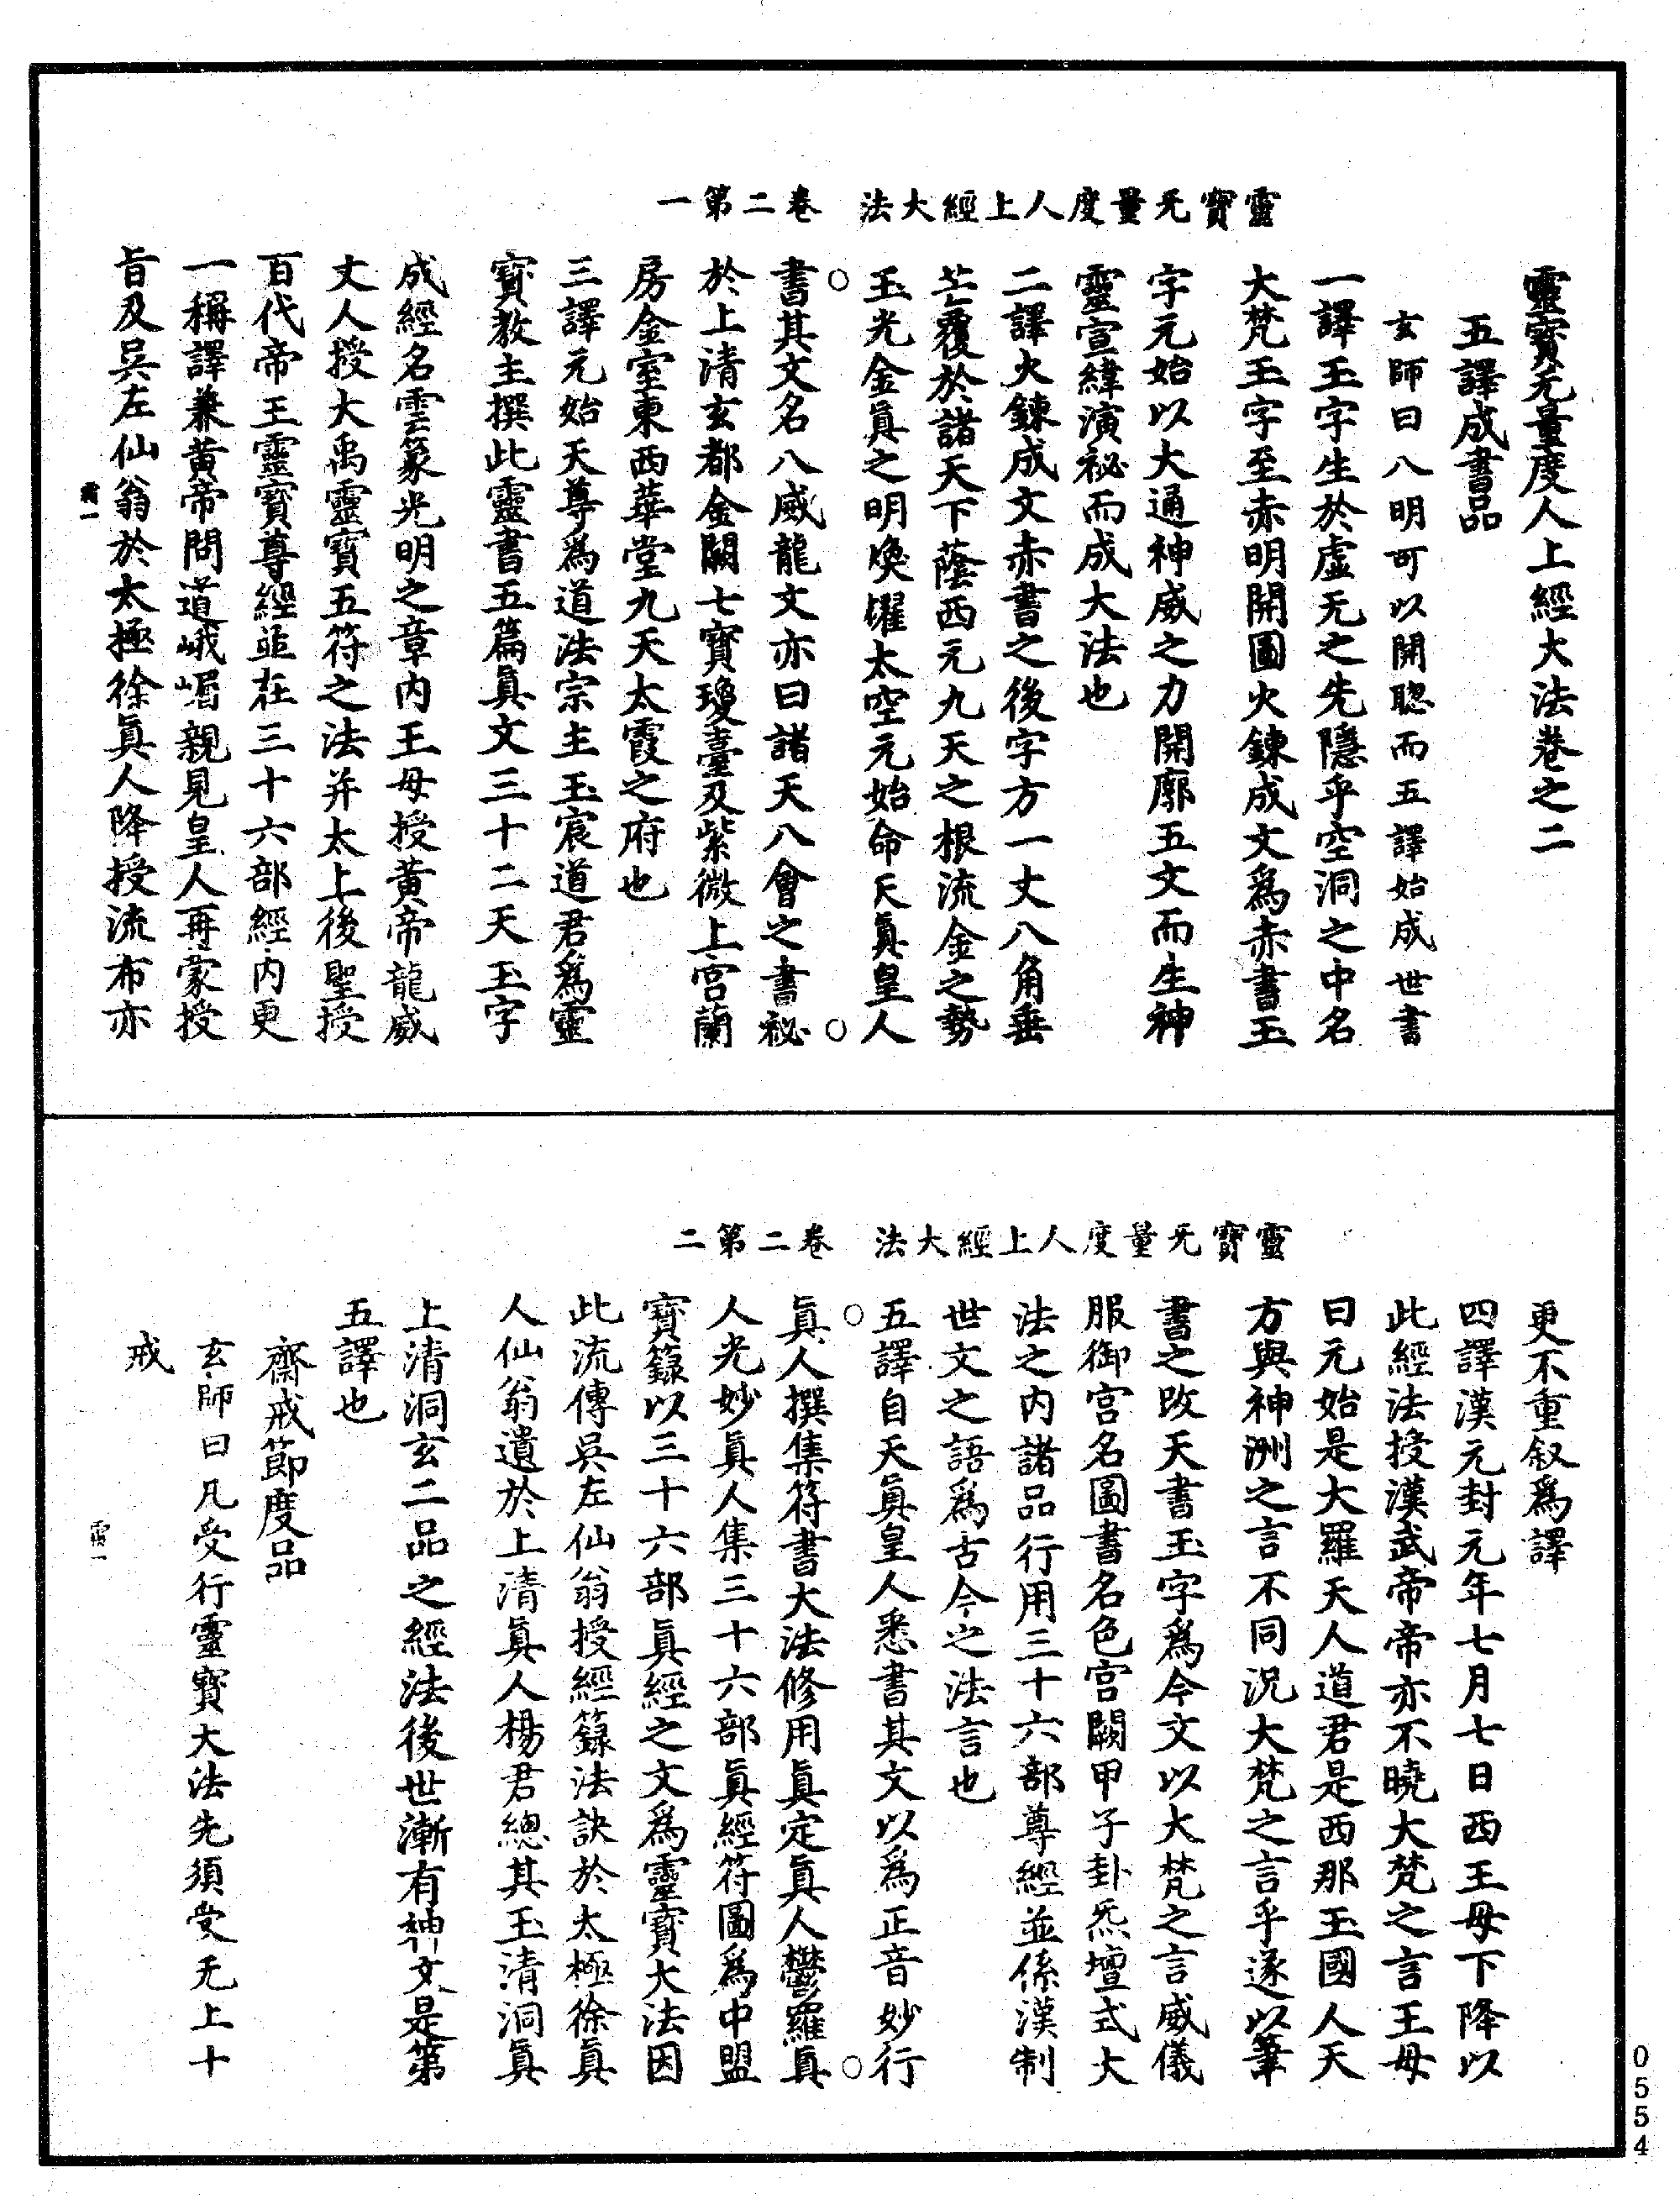 靈寶无量度人上經大法　卷二第一
靈寶无量度人上經大法卷之二
五譯成書品
玄師曰八明可以開聰而五譯始成世書
一譯玉字生於虛无之先隱乎空洞之中名
大梵玉字至赤明開圖火鍊成文爲赤書玉
字元始以大通神威之力開廓五文而生神
靈宣緯演祕而成大法也
二譯火鍊成文赤書之後字方一丈八角垂
芒覆於諸天下蔭西元九天之根流金之勢
玉光金眞之明煥燿太空元始命天眞皇人
書其文名八威龍文亦曰諸天八會之書祕
於上清玄都金闕七寶瓊臺及紫微上宮蘭
房金室東西華堂九天太霞之府也
三譯元始天尊爲道法宗主玉宸道君爲靈
寶教主撰此靈書五篇眞文三十二天玉字
成經名雲篆光明之章內王母授黃帝龍威
丈人授大禹靈寶五符之法并太上後聖授
百代帝王靈寶尊經並在三十六部經內更
一稱譯兼黃帝問道峨嵋親見皇人再蒙授
旨及吳左仙翁於太極徐眞人降授流布亦
靈一
靈寶无量度人上經大法　卷二第二
更不重叙爲譯
四譯漢元封元年七月七日西王母下降以
此經法授漢武帝帝亦不曉大梵之言王母
曰元始是大羅天人道君是西那玉國人天
方與神洲之言不同況大梵之言乎遂以筆
書之改天書玉字爲今文以大梵之言威儀
服御宮名圖書名色宮闕甲子卦炁壇式大
法之內諸品行用三十六部尊經並係漢制
世文之語爲古今之法言也
五譯自天眞皇人悉書其文以爲正音妙行
眞人撰集符書大法修用眞定眞人鬱羅眞
人光妙眞人集三十六部眞經符圖爲中盟
寶籙以三十六部眞經之文爲靈寶大法因
此流傳吳左仙翁授經籙法訣於太極徐眞
人仙翁遺於上清眞人楊君總其玉清洞眞
上清洞玄二品之經法後世漸有神文是第
五譯也
齋戒節度品
玄師曰凡受行靈寶大法先須受无上十
戒
靈一
0554